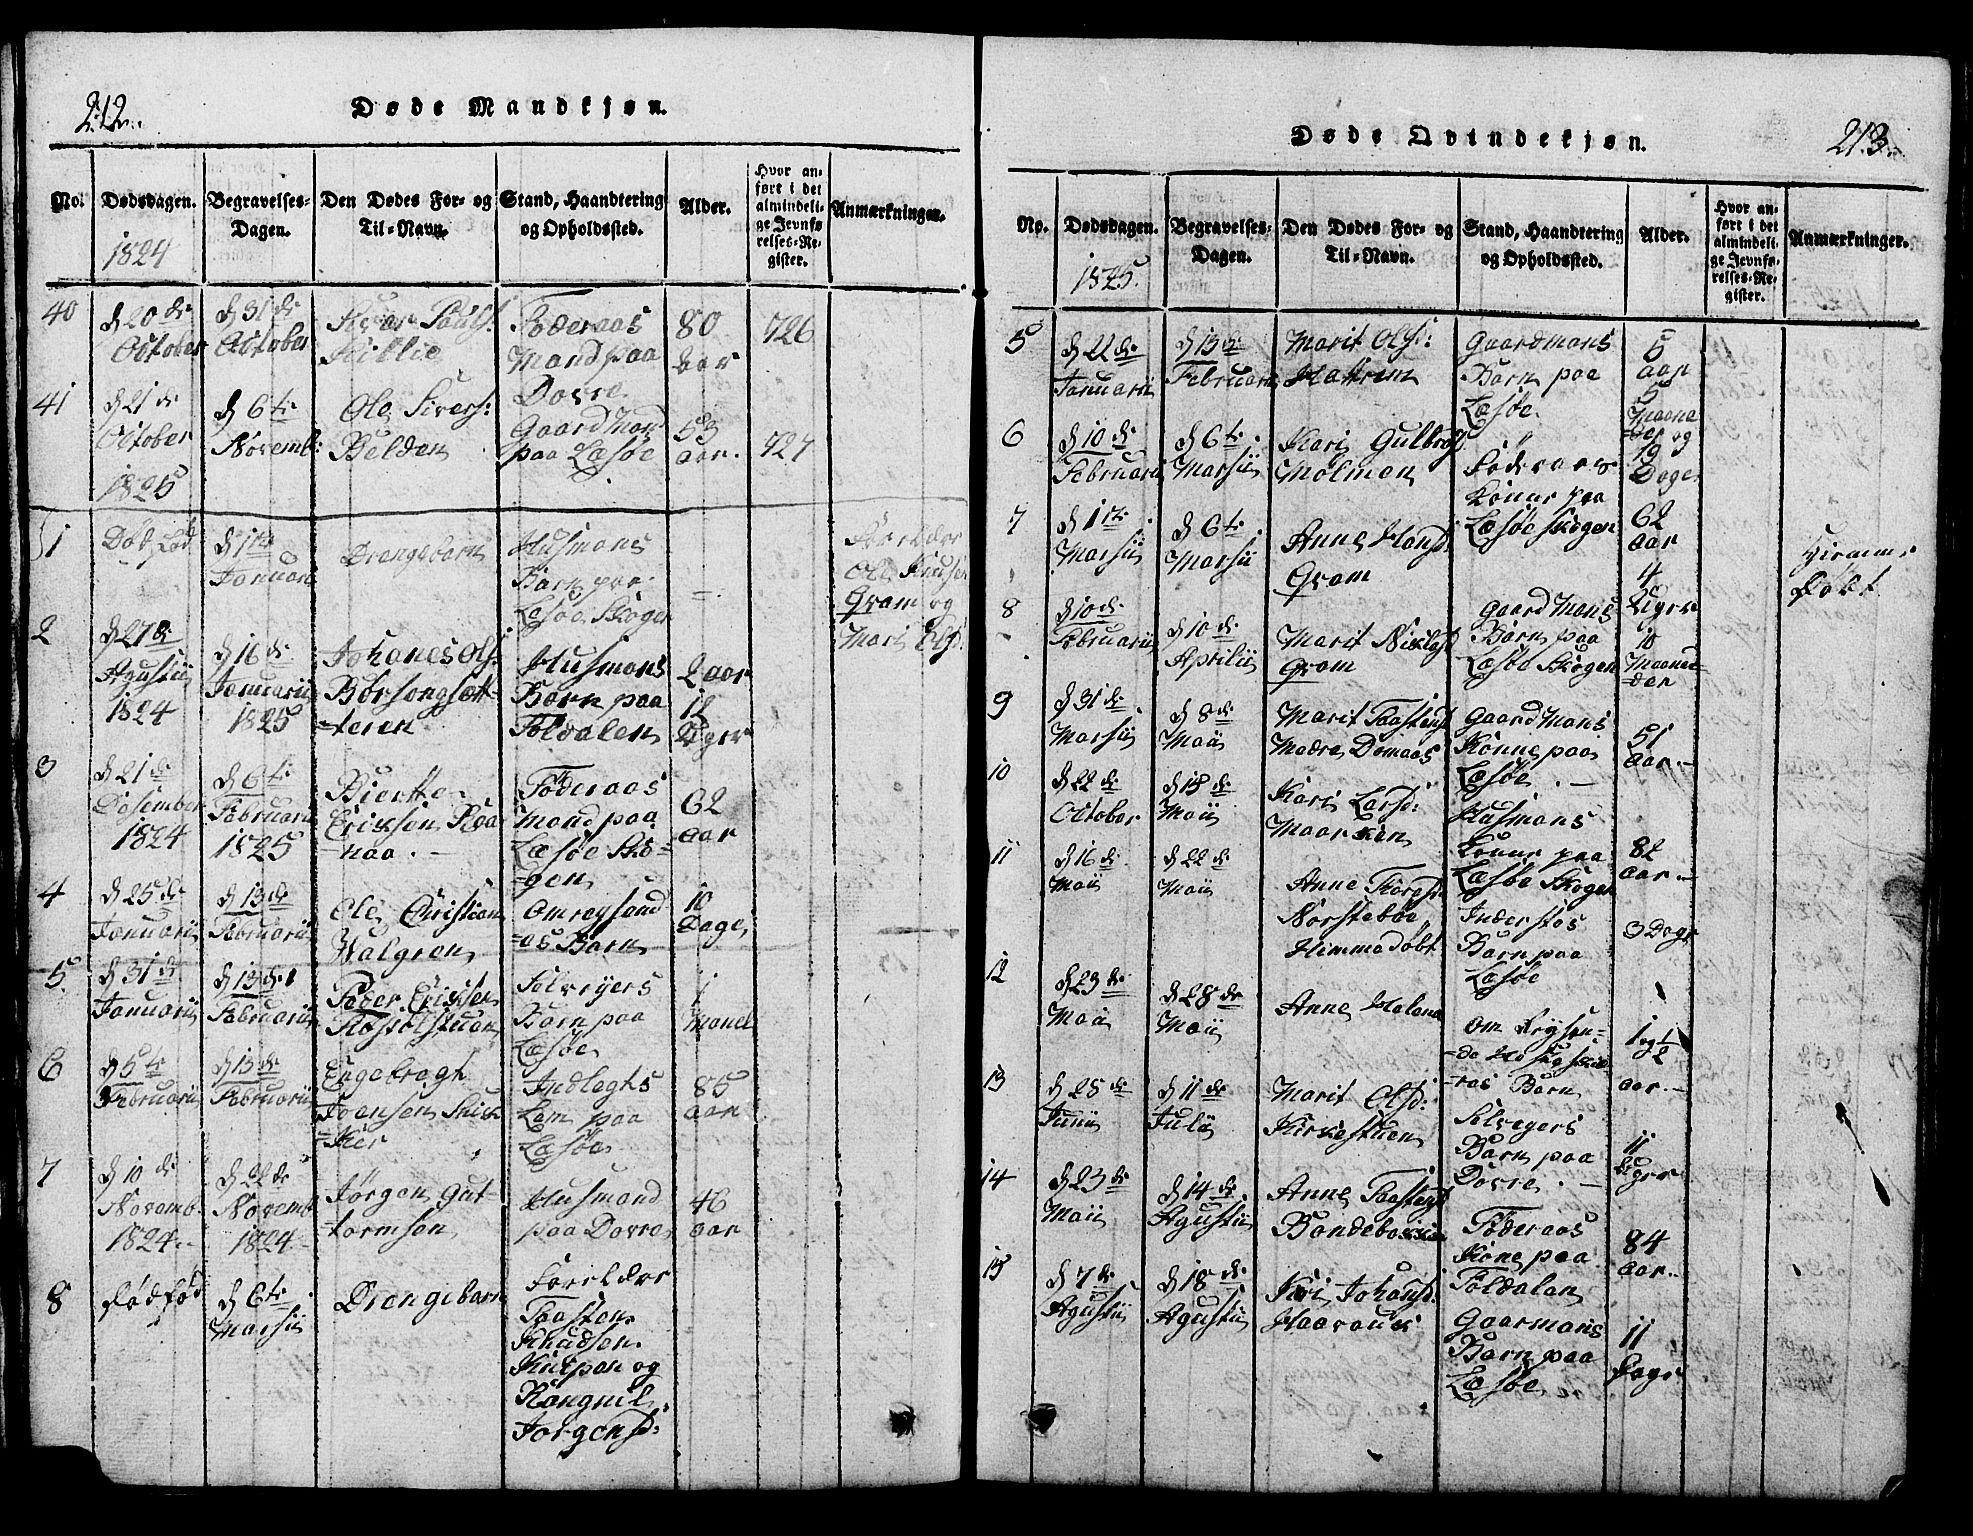 212.
Døde Mandkjøn.
No.
Dødsdagen.
Begravelses-
Dagen.
Den Dødes For- og
Til-Navn.
Stand, Haandtering
og Opholdssted.
Alder.
Hvor an-
ført i det
almindeli-
ge Jevnfø-
relses-Re-
gister.
Anmærkninger.
1824
40
d 20 de
October
d 31 de
October
Killie
Føderaas
Mand paa
Dovre
80
aar
726
41
d 21 de
October
d 6 te
Novemb:
Ole Sivers:
Belden
Gaard Man
paa Læsøe
53
aar.
727
1825
1
Død fød
d 1 te
Januari
Drengebarn
Husmans
Barn paa
Læsøe Skogen
Foreldre
Ole Knuse
Gram og
Mari Olsd.
2
d 27 de
Agustii
1824
d 16 de
Januarii
1825
Johanes Ols:
Børsongsæt-
=teren
Husmans
Barn paa
Foldalen
2 aar
12
Uger
3
d 21 de
Desember
1824
d 6 te
Februari
1825
Biertte
Erichsen Raa
=naa.-
Føderaas
Mand paa
Læsøe Sko=
=gen
62
aar
4
d 25 de
Januarii
d 13 de
Februarii
Ole Christian
Walgren
Omreysend
=es Barn
10
Dage
5.
d 31 de
Januarii
d 13 de
Februarii
Peder Erichsen
Selveyers
Barn paa
Læsøe
1
Maned
6
d 5 te
Februarii
d 13 de
Februarii
Engebregt
Joensen
=ker
Indlegts
Lem paa
Læsøe
85
aar
7
d 10 de
Novemb.
1824.
d 22 de
Novemb
1824
Jørgen Gut-
=tormsen
Husmand
paa Dovre
46
aar
8
død fød
d 6 te
Marsii
Drengebarn
Foreldre
Taasten
Knudsen
og
Rangnil
Jorgensd:
213.
Døde Qvindekjøn.
No.
Dødsdagen.
Begravelses-
Dagen.
Den Dødes For- og
Til-Navn.
Stand, Haandtering
og Opholdssted.
Alder.
Hvor an-
ført i det
almindeli-
ge Jevnfø-
relses-Re-
gister.
Anmærkninger.
1825.
5
d 22 de
Januarii
d 13 de
Februarii
Marit Olsd:
Hattrem
Gaardmans
Barn paa
Læsøe
5
aar
5
Maane
=der og
19
Dage
6
d 10 de
Februarii
d 6 te
Marsii
Kari Gulbrd
Mølmen
Føderaas
Konne paa
Læsøe Skogen
62
aar
7
d 1 te
Marsii
d 6 te
Marsii
Anne Hansd
Gram
Gaard Mans
Barn paa
Læsøe Skogen
4
Uger
Hieme
døbt
8
d 10 de
Februarii
d 10 de
Aprilii
Marit Niælsd
Gram
10
Maane
=der
9
d 31 de
Marsii
d 8 de
Maii
Marit Taastensd
Madre Domaas
Gaard Mans
Konne paa
Læsøe
51
aar.-
10
d 22 de
October
d 15 de
Maii
Kari Larsd:
Maarsken
Husmans
Konne paa
Læsøe Skogen
82
aar.-
11
d 16 de
Maii
d 22 de
Maii
Anne Toresd
Norstebøe
Himmedøbt
Inderstes
Barn paa
Læsøe
3 Dage
12
d 23 de
Maii
d 28 de
Maii
Anne Halena
Om Reysen-
=de
=ras Barn
1 og 1/2
aar.-
13
d 25 de
Junii
d 11 de
Julii
Marit Olsd:
Kirkestuen
Selvegers
Barn paa
Dovre.-
11
Uger
14
d 23 de
Maii
d 14 de
Agustii
Anne Taastensd
Føderaas
Kone paa
Foldalen
84
aar..
15
d 7 de
Agustii
d 18 de
Agustii
Kari Johansd:
Gaarmans
Barn paa
Læsøe
11
Dage